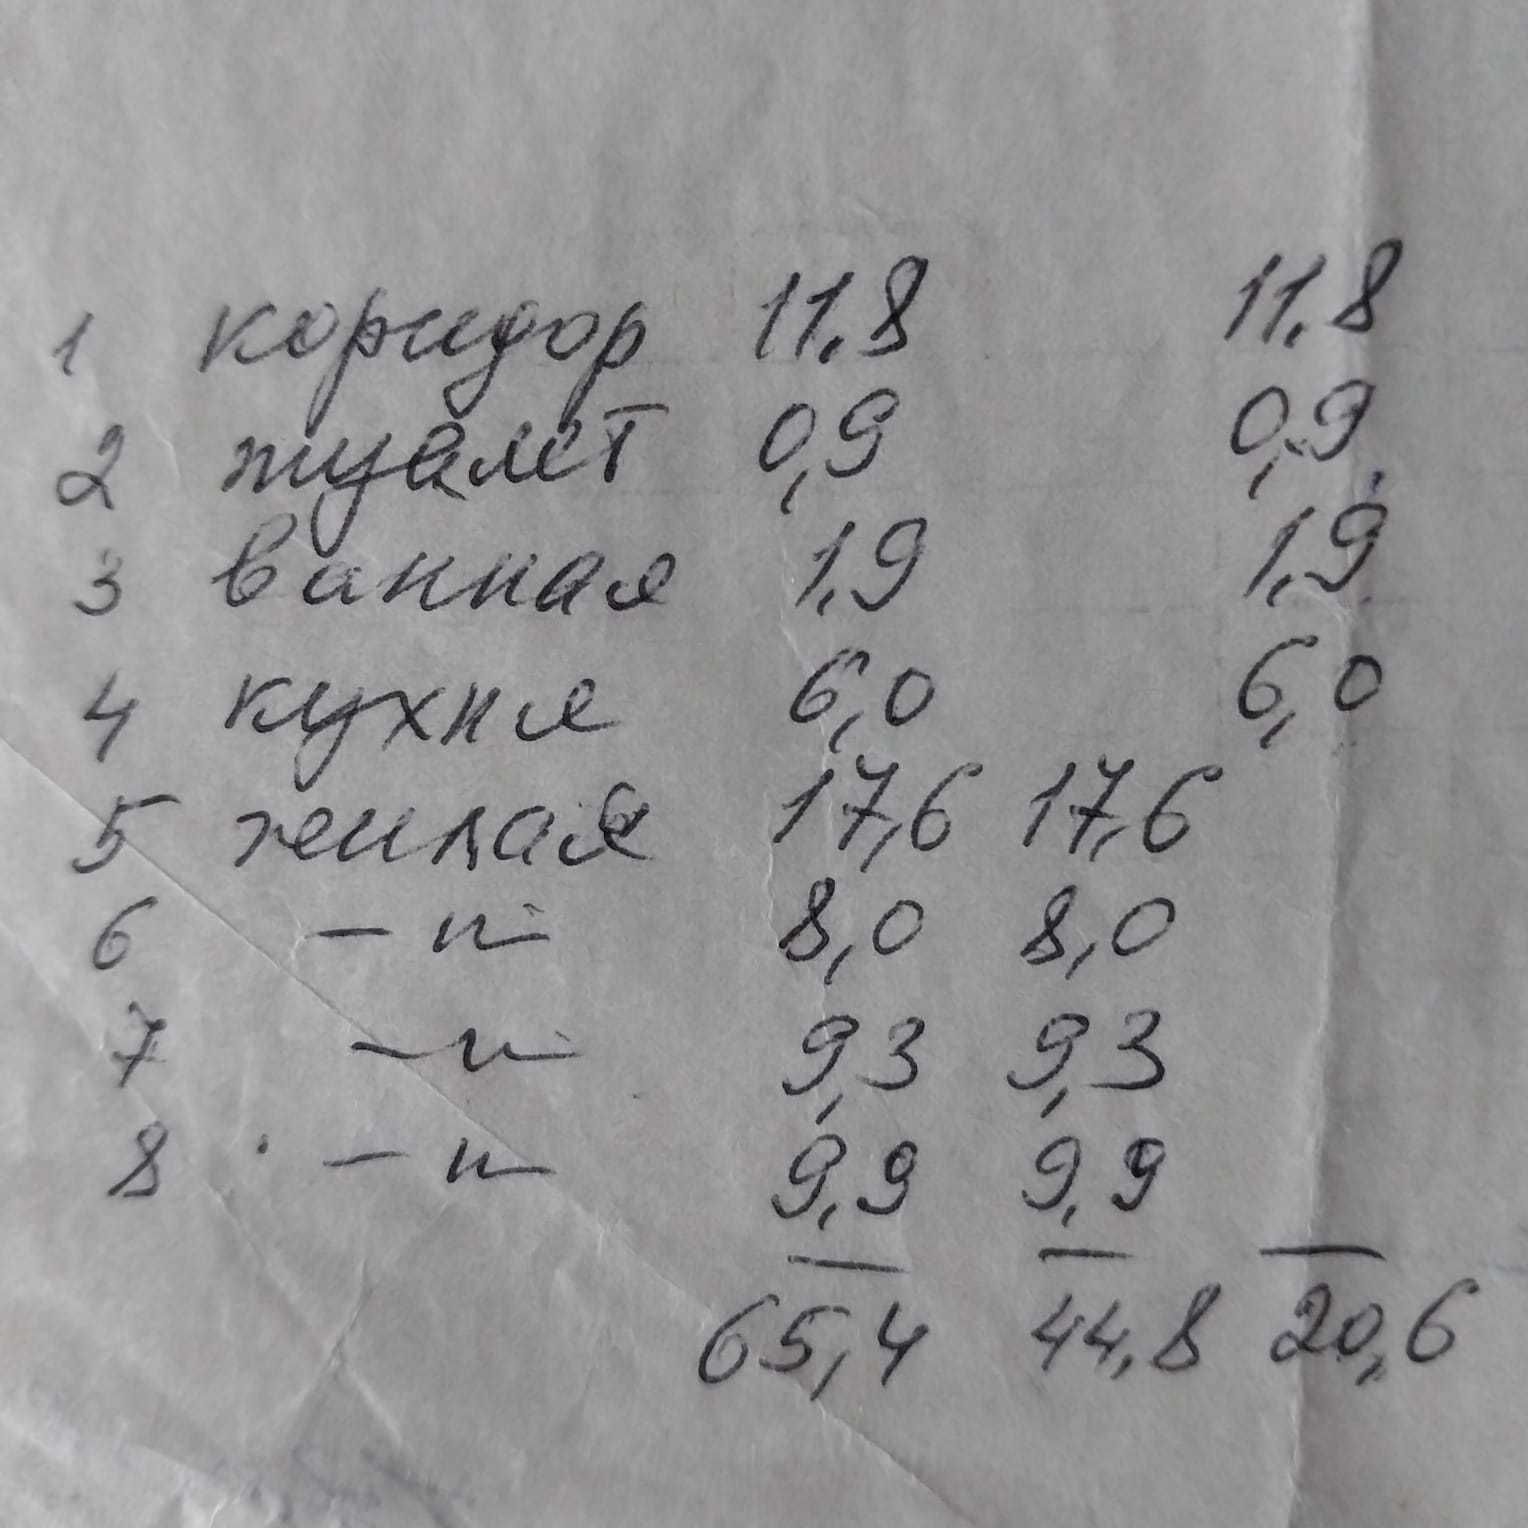 1 коридор 11,8 11,8
2 туалет 0,9 0,9
3 ванная 1,9 1,9
4 кухня 6,0 6,0
5 жилая 17,6 17,6
6 -"- 8,0 8,0
7 -"- 9,3 9,3
8 -"- 9,9 9,9
65,4 44,8 20,6